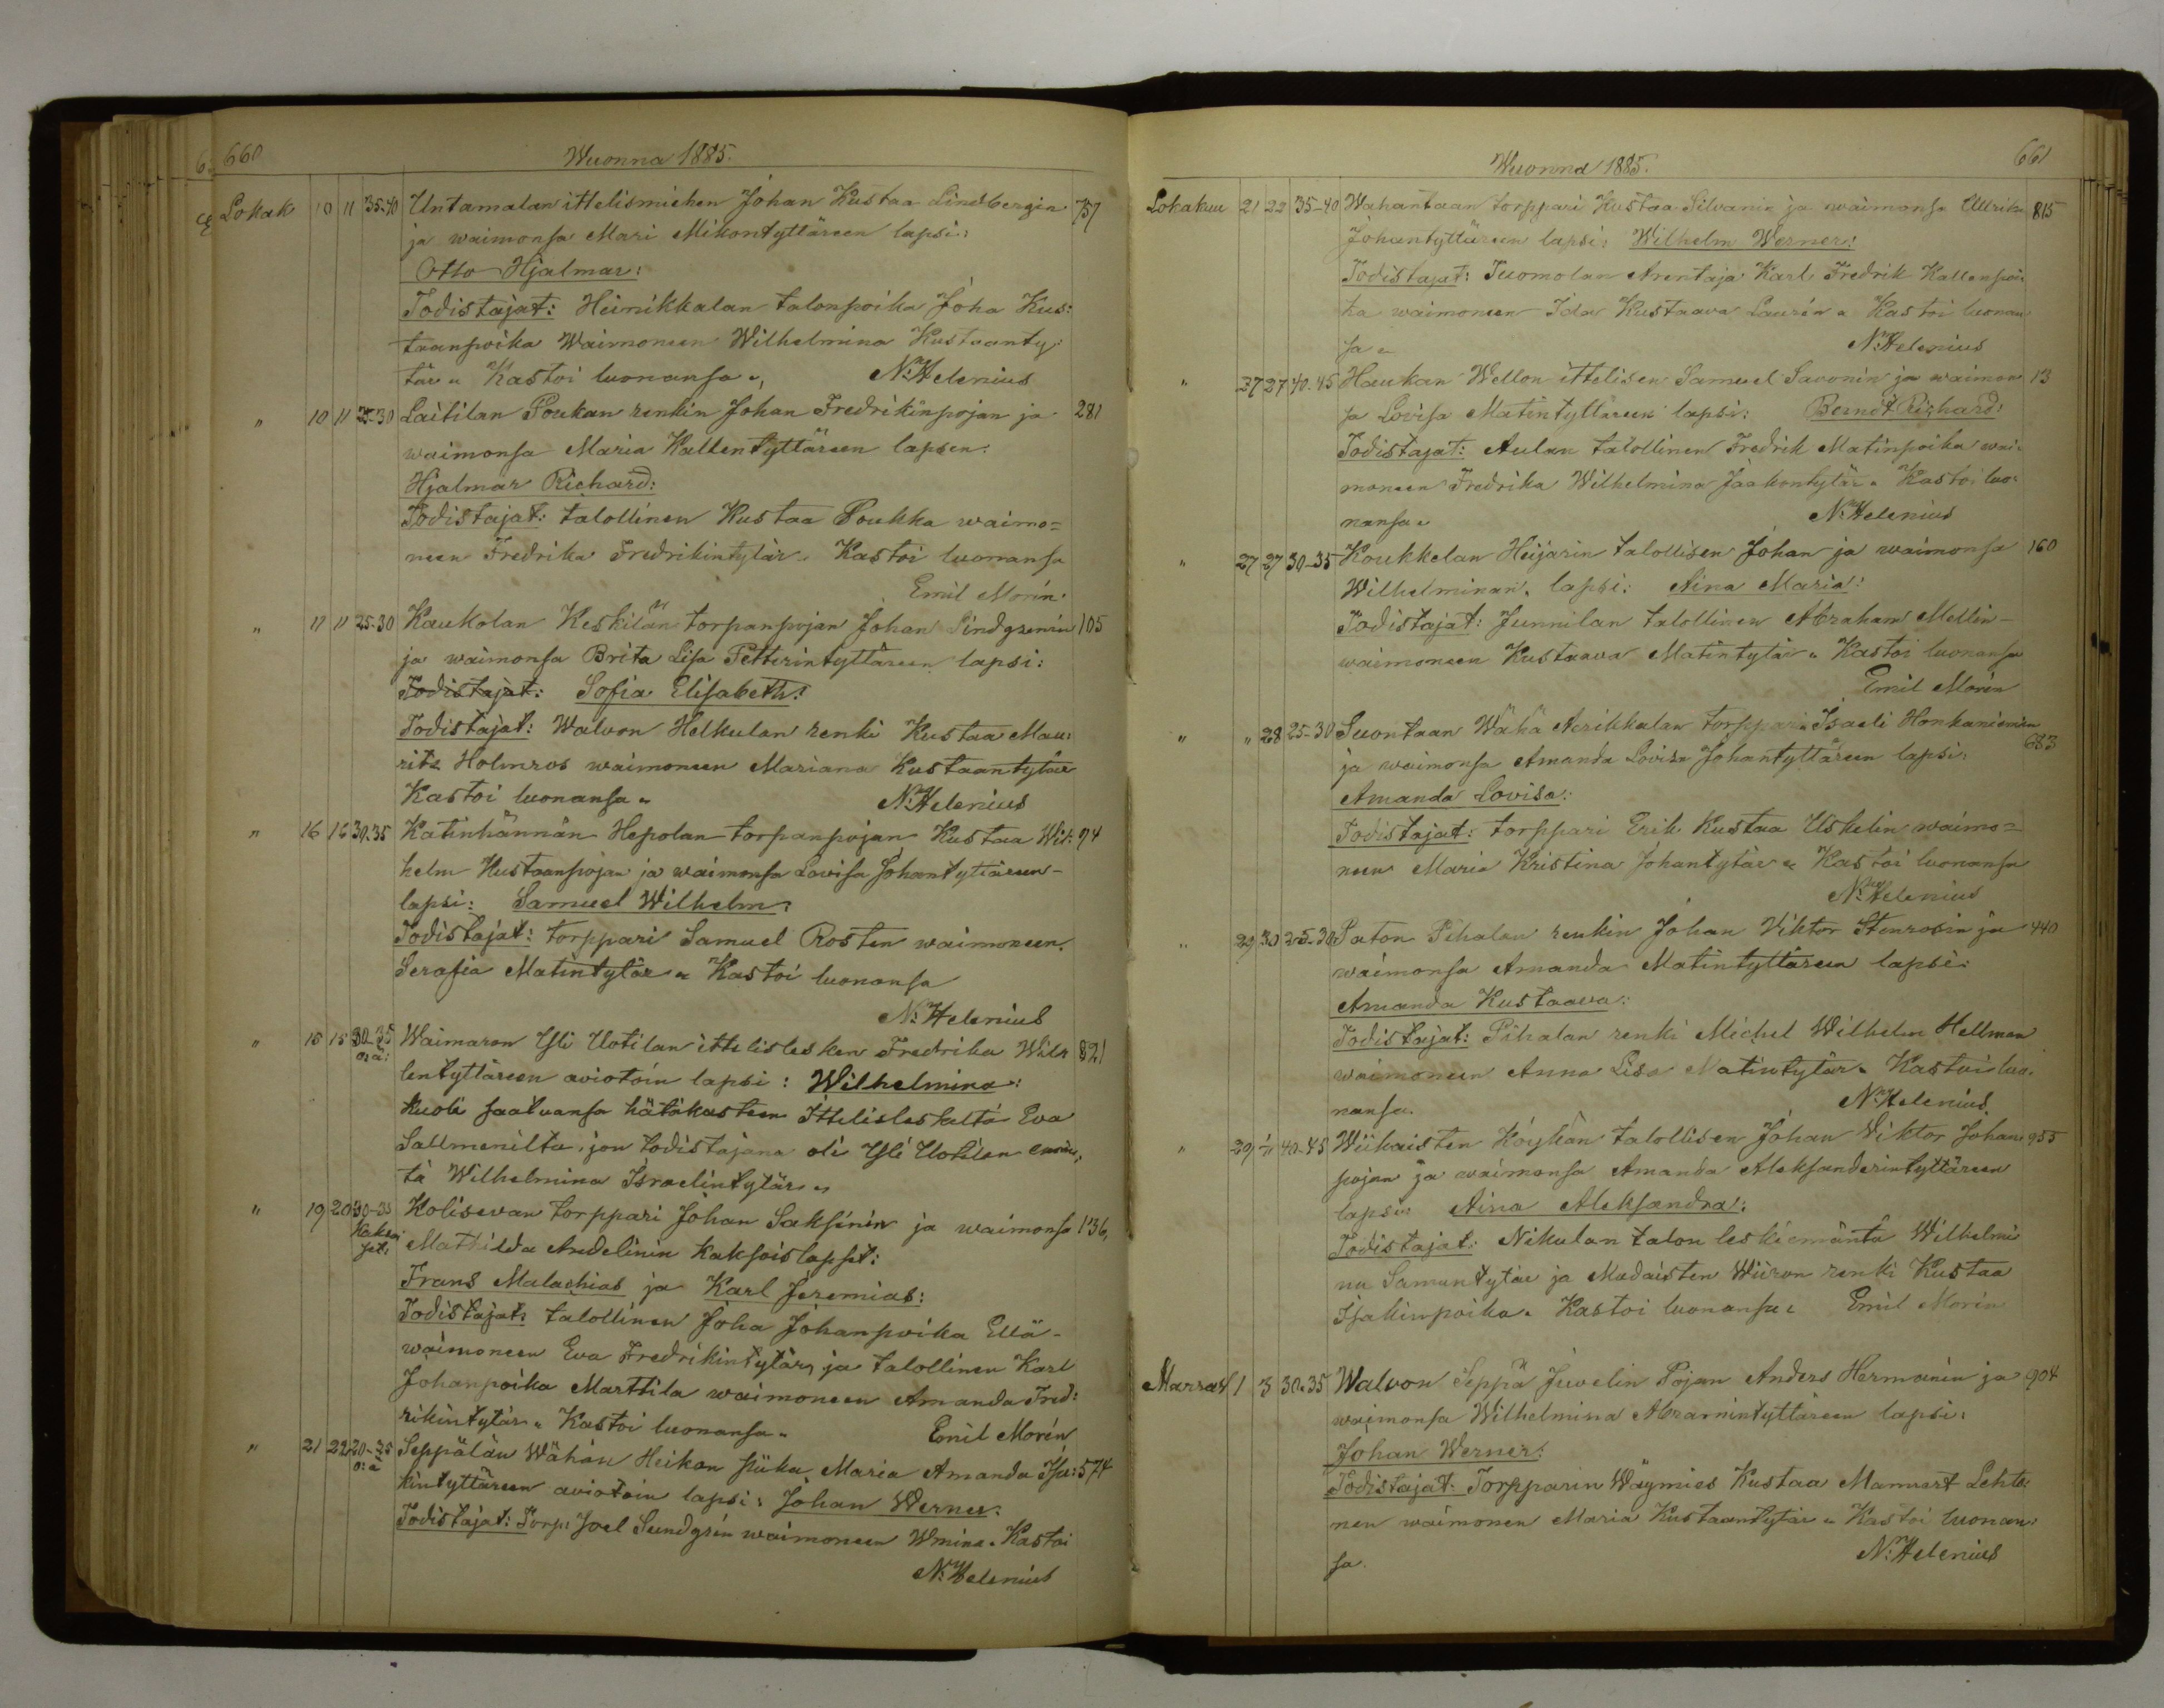 660
Wuonna 1885.
Lokak 10 11 35-40 Untamalan ittelismiehen Johan Kustaa Lindbergin 757
ja waimonsa Mari Mikontyttäreen lapsi:
Otto Hjalmar:
Todistajat: Heinikkalan talonpoika Joha Kus:
taanpoika Waimoneen Wilhelmina Kustaanty:
tär „ Kastoi luonansa „ N. Helenius
„ 10 11 25-30 Laitilan Poukan renkin Johan Fredrikinpojan ja 281
waimonsa Maria Kallentyttäreen lapsen:
Hjalmar Richard:
Todistajat: talollinen Kustaa Poukka waimo=
neen Fredrika Fredrikintytär. Kastoi luonansa
Emil Morin.
„ 11 11 25-30 Kaukolan Keskilän torpanpojan Johan Lindgrenin 105
ja waimonsa Brita Lisa Petterintyttäreen lapsi:
Todistajat: Sofia Elisabeth:
Todistajat: Walvon Helkulan renki Kustaa Mau:
rits Holmros waimoneen Mariana Kustaantytär
Kastoi luonansa „ N. Helenius
„ 16 16 30-35 Katinhännän Hepolan torpanpojan Kustaa Wil: 94
helm Kustaanpojan ja waimonsa Lovisa Johantyttäreen
lapsi: Samuel Wilhelm:
Todistajat: torppari Samuel Rosten waimoneen.
Serafia Matintytär „ Kastoi luonansa
N. Helenius
„ 15 15 30-35 Waimaron Yli Uotilan ittelislesken Fredrika Wilh 821
o: ä: lentyttäreen aviotoin lapsi: Wilhelmina:
Kuoli saatuansa hätäkasteen Ittelisleskeltä Eva
Sallmenilta, jon todistajana oli Yli Uotilan emän,
tä Wilhelmina Israelintytär „
„ 19 20 30-35 Kolisevan torppari Johan Saksinin ja waimonsa 136,
Kaksoi set. Mathilda Andelinin Kaksoislapset:
Frans Malachias ja Karl Jeremias:
Todistajat: talollinen Joha Johanpoika Ellä-
waimoneen Eva Fredrikintytär, ja talollinen Karl
Johanpoika Marttila waimoneen Amanda Fred:
rikintytär „ Kastoi luonansa „ Emil Morin
„ 21 22 20-25 Seppälän Wähän Heikon piika Maria Amanda Isa: 574
o: ä kintyttäreen aviotoin lapsi: Johan Werner:
Todistajat: Torp: Joel Sundgrén waimoneen Wmina. Kastoi
N. Helenius
661
Wuonna 1885.
Lokakuu 21 22 35-40 Wahantaan torppari Kustaa Silvanin ja waimonsa Ulrika 815
Johantyttäreen lapsi: Wilhelm Werner:
Todistajat: Tuomolan Arentaja Karl Fredrik Kallenpoi-
ka waimoneen Ida Kustaava Laurin „ Kastoi luonan
sa „ N. Helenius
„ 27 27 40-45 Haukan Wellon ittelisen Samuel Savonin ja waimon 13
sa Lovisa Matintyttäreen lapsi: Berndt Richard:
Todistajat: Aulan talollinen Fredrik Matinpoika wai-
moneen Fredrika Wilhelmina Jaakontytär. Kastoi luo-
nansa „ N. Helenius
„ 27 27 30-35 Koukkelan Heijarin talollisen Johan ja waimonsa 160
Wilhelminan, lapsi: Aina Maria:
Todistajat: Junnilan talollinen Abraham Mellin-
waimoneen Kustaava Matintytär „ Kastoi luonansa
Emil Morin
„ „ 28 25-30 Suontaan Wähä torppari Isaeli 683
ja waimonsa Amanda Lovisa Johantyttäreen lapsi:
Amanda Lovisa:
Todistajat: torppari Erik Kustaa Uskelin waimo=
neen Maria Kristina Johantytär „ Kastoi luonansa
N. Helenius
„ 29 30 25-30 Saton Pihalan renkin Johan Viktor Stenrosin ja 440
waimonsa Amanda Matintyttäreen lapsi:
Amanda Kustaava:
Todistajat: Pihalan renki Michel Wilhelm Hellman
waimoneen Anna Lisa Matintytär. Kastoi luo.
nansa. N. Helenius.
„ 29 1/11 40-45 Wiikaisten Köykän talollisen Johan Viktor Johan: 955
pojan ja waimonsa Amanda Aleksanderintyttäreen
lapsi: Aina Aleksandra:
Todistajat: Nikulan talon leskiemäntä Wilhelmi
na Samuntytär ja Madaisten Wiiron renki Kustaa
Isakinpoika. Kastoi luonansa „ Emil Morin
Marras 1 3 30-35 Walvon Seppä Juvelin Pojan Anders Hermanin ja 904
waimonsa Wilhelmina Abramintyttäreen lapsi:
Johan Werner:
Todistajat: Torpparin Wäymies Kustaa Mannert Lehto:
nen waimonen Maria Kustaantytär „ Kastoi luonan:
sa. N. Helenius